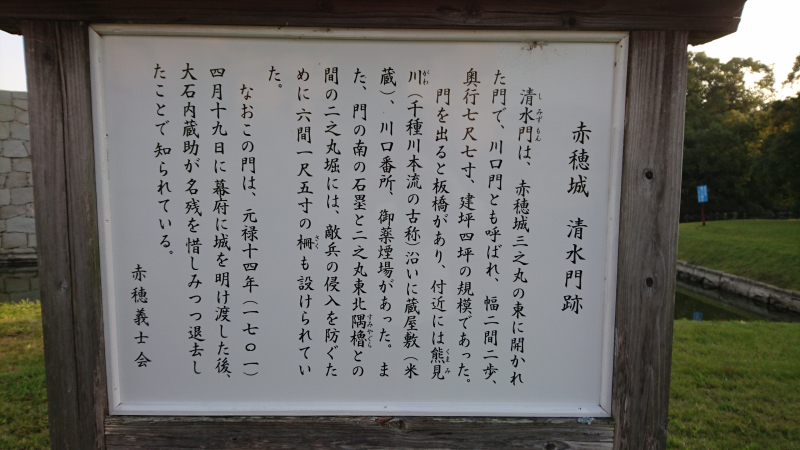 赤穂城　清水門跡
清水門は、赤穂城三之丸の東に開かれ
た門で、川口門とも呼ばれ、幅二間二歩、
奥行七尺七寸、建坪四坪の規模であった。
門を出ると板橋があり、付近には熊見
川（千種川本流の古称）沿いに蔵屋敷（米
蔵）、川口番所、御薬煙場があった。ま
た、門の南の石塁と二之丸東北隅櫓との
間の二之丸堀には、敵兵の侵入を防ぐた
めに六間一尺五寸の柵も設けられてい
た。
なおこの門は、元禄十四年（一七〇一）
四月十九日に幕府に城を明け渡した後、
大石内蔵助が名残を惜しみつつ退去し
たことで知られている。
赤穂義士会